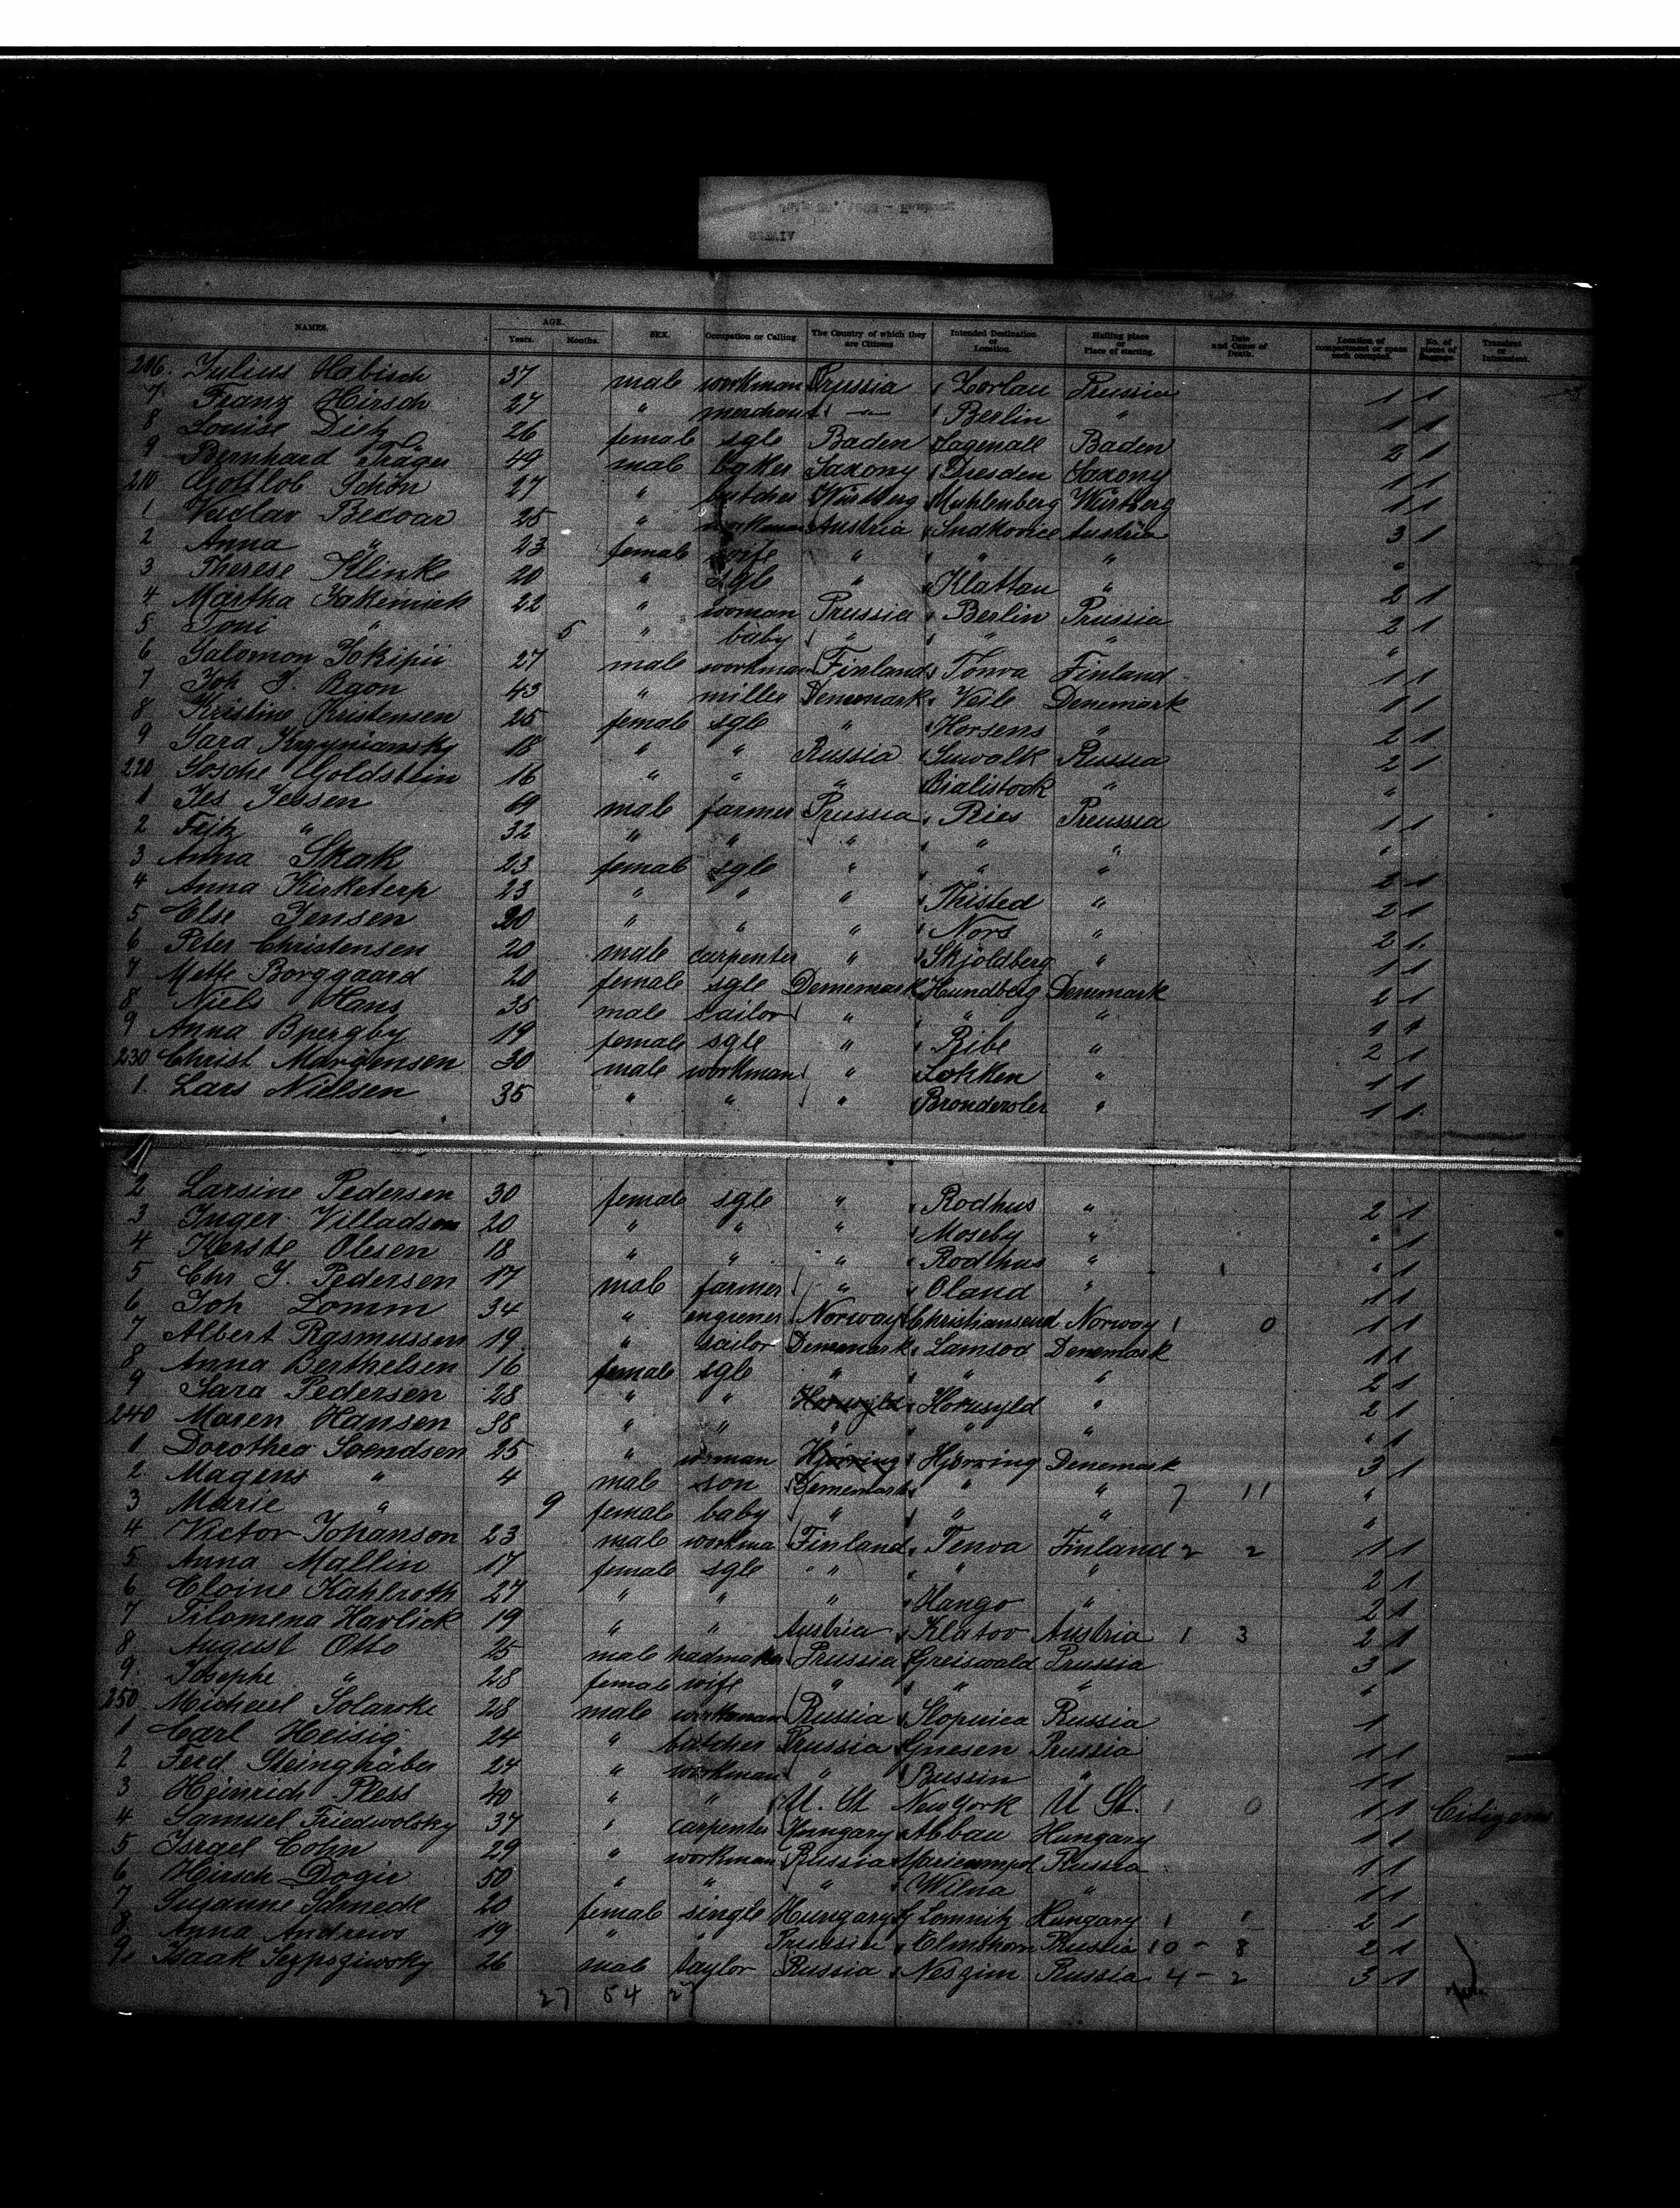 NAMES. AGE. Years. Months. SEX. Occupation or Calling The Country of which they are Citizens Intended Destination or Location. Hailing place or Place of starting. Date and Cause of Death. Location of compartment or space each occupied. No. of pieces of Baggage. Transient or Intransient.
206. Julius Habisch 37 male workman Prussia Zorlau Prussia 1 1
7 Franz Hirsch 27 " merchant — Berlin " 1 1
8 Louise Dietz 26 female sgle Baden Baden 2 1
9 Bernhard Träger 49 male baker Saxony Dresden Saxony 1 1
210 Gottlob Schön 27 " butcher Würtberg Muhlenberg Würtberg 1 1
1 25 " workman Austria Austria 3 1
2 Anna " 23 female wife " " " "
3 Therese Klinke 20 " sgle " Klattau " 2 1
4 Martha 22 " woman Prussia Berlin Prussia 2 1
5 Toni " 5 " baby " " " "
6 Salomon Jokipii 27 male workman Finland Finland 1 1
7 Joh J. 43 " miller Denemark Veile Denemark 1 1
8 Kristine Kristensen 25 female sgle " Horsens " 2 1
9 Sara 18 " " Russia Suwalk Russia 2 1
220 Sosche Goldstein 16 " " " Bialistock " "
1 Jes Jessen 69 male farmer Prussia Ries Preussia 1 1
2 " 32 " " " " " "
3 Anna Skak 23 female sgle " " " 2 1
4 Anna Kirketerp 23 " " " Thisted " 2 1
5 Else Jensen 20 " " " Nors " 2 1
6 Peter Christensen 20 male carpenter " Skjoldberg " 1 1
7 Mette Borggaard 20 female sgle Denemark Hundborg Denemark 2 1
8 Niels Hans 35 male sailor " " " 1 1
9 Anna 19 female sgle " Ribe " 2 1
230 Christ 30 male workman " Lokken " 1 1
1. Lars Nielsen 35 " " " Bronderslev " 1 1
2 Larsine Pedersen 30 female sgle " Rodhus " 2 1
3 Inger Villadsen 20 " " " Moseby " " 1
4 Kerste Olesen 18 " " " Rodhus " " 1
5 Chr J. Pedersen 17 male farmer " Oland " 1 1
6 Joh Lomm 34 " Norway Christiansend Norway 1 0 1 1
7 Albert Rasmussen 19 " sailor Denemark Denemark 1 1
8 Anna Berthelsen 16 female sgle " " " 2 1
9 Sara Pedersen 28 " " Hornsyld " 2 1
240 Maren Hansen 38 " " " " " 1
1 Dorothea Svendsen 25 " woman Hjorring Hjorring Denemark 3 1
2 Magens " 4 male son Denemark " " 7 11 "
3 Marie " 9 female baby " " " "
4 Victor Johanson 23 male workma Finland Finland 2 2 1 1
5 Anna Mallin 17 female sgle " " " " 2 1
6 Kahlroth 27 " " " Hango " 2 1
7 Filomena Havlick 19 " " Austria Klatov Austria 1 3 2 1
8 August Otto 25 male hadmaker Prussia Greiswald Prussia 3 1
9. Josephe " 28 female wife " " " "
250 28 male workman Russia Russia 1
1 Carl Heisig 24 " butcher Prussia Gnesen Prussia 1 1
2 Ferd Steingräber 24 " workman " Bussin " 1 1
3 Heinrich Pless 40 " " U. St New York U St. 1 0 1 1 Citizen
4 Samuel Friedwolsky 37 " carpenter Hungary Abbau Hungary 1 1
5 Israel Cohn 29 " workman Russia Mariampol Russia 1 1
6 Hirsch Dogie 50 " " " Wilna " 1 1
7 Susanne 20 female single Hungary Lomnitz Hungary 1 1 2 1
8. Anna Andrews 19 " " Prussia Elmshorn Russia 10 - 8 2 1
9. Isaak 26 male taylor Russia Neszim Russia 4 - 2 3 1
27 54 27